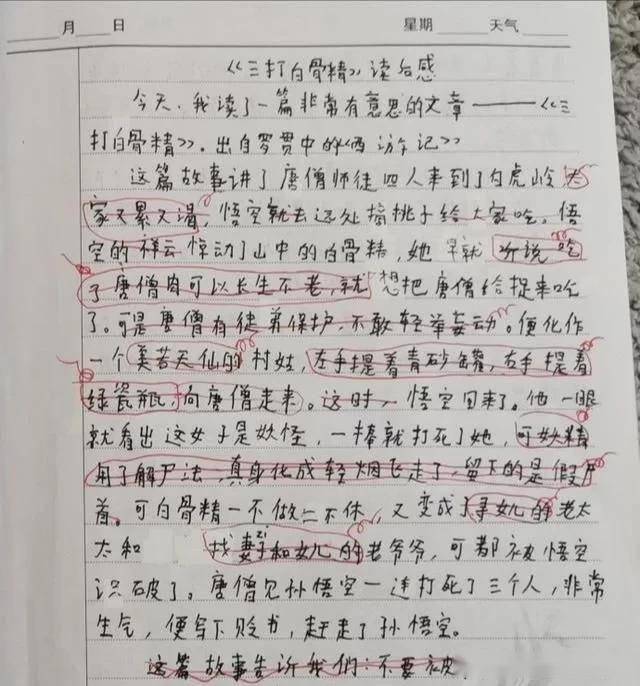 月 日 星期 天气
《三打白骨精》读后感
今天，我读了一篇非常有意思的文章——《三
打白骨精》。出自罗贯中的《西游记》
这篇故事讲了唐僧师徒四人来到了白虎岭，大
家又累又渴，悟空就去远处摘桃子给大家吃。悟
空的祥云惊动了山中的白骨精，她早就听说吃
了唐僧肉可以长生不老，就想把唐僧给捉来吃
了。可是唐僧有徒弟保护，不敢轻举妄动。便化作
一个美若天仙的村姑，左手提着青砂罐，右手提着
绿瓷瓶，向唐僧走来。这时，悟空回来了。他一眼
就看出这女子是妖怪，一棒就打死了她，可妖精
用了解尸法，真身化成轻烟飞走了，留下的是假尸
首。可白骨精一不做二不休，又变成了寻女儿的老太
太和 找妻子和女儿的老爷爷，可都被悟空
识破了。唐僧见孙悟空一连打死了三个人，非常
生气，便写下贬书，赶走了孙悟空。
这篇故事告诉我们：不要被